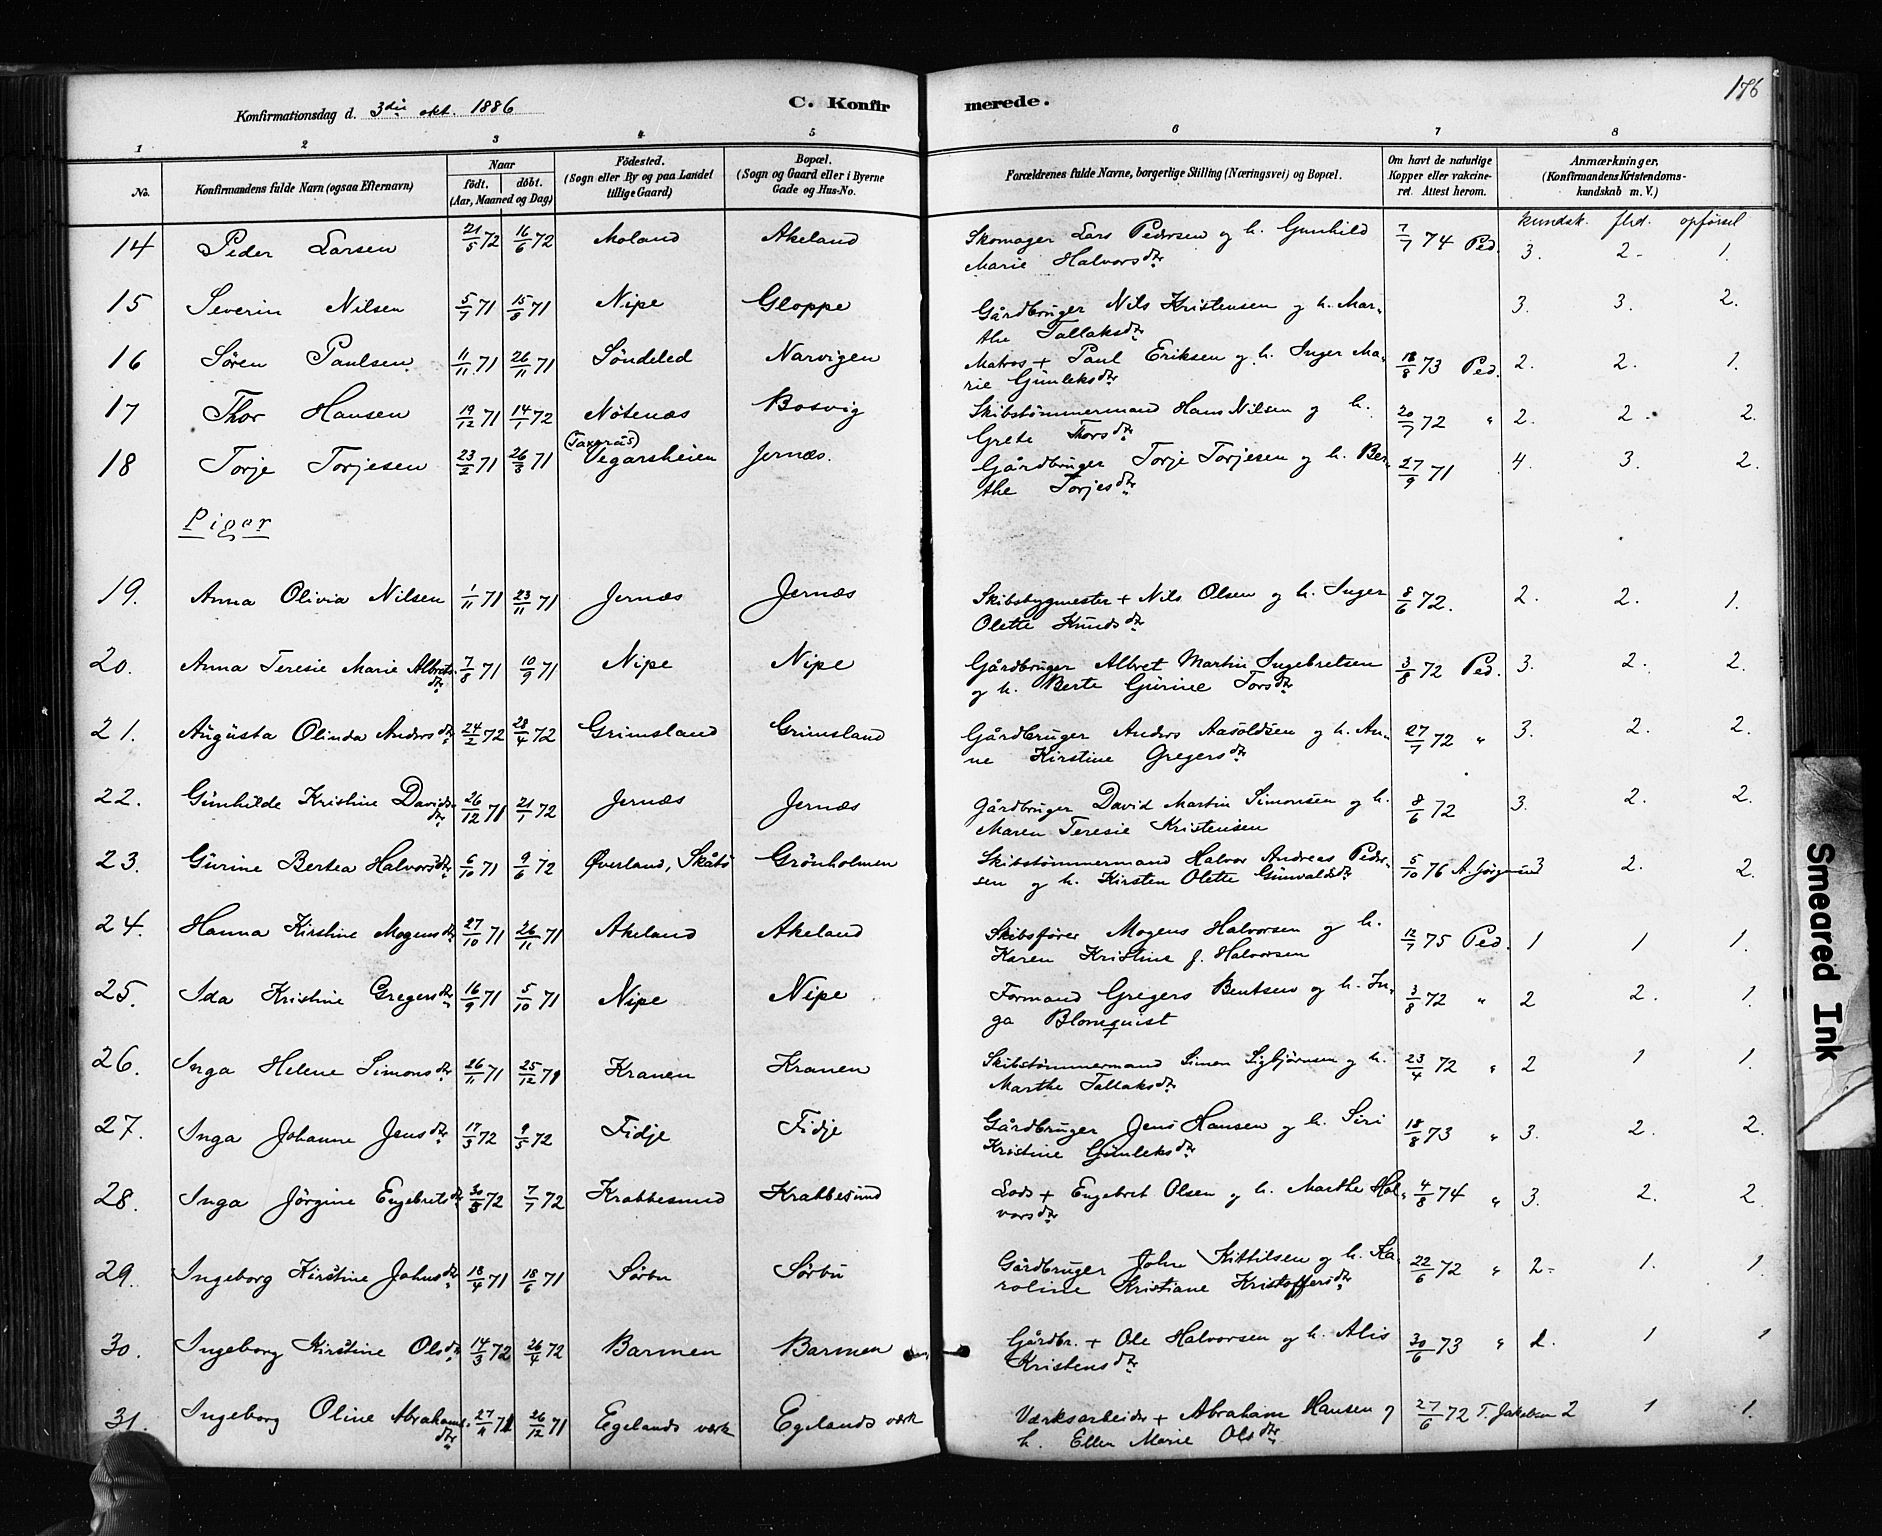 176
Konfirmationsdag d. 3die okt. 1886 C. Konfirmerede.
1 2 3 4 5 6 7 8
No. Konfirmandens fulde Navn (ogsaa Efternavn) Naar födt. döbt. (Aar, Maaned og Dag) Födested. (Sogn eller By og paa Landet tillige Gaard) Bopæl. (Sogn og Gaard eller i Byerne Gade og Hus-No. Forældrenes fulde Navne, borgerlige Stilling (Næringsvei) og Bopæl. Om havt de naturlige Kopper eller vakcineret. Attest herom. Anmærkninger, (Konfirmandens Kristendomskundskab m. V.)
kundsk. flid. opførsel
14 Peder Larsen 21/5 72 16/6 72 Moland Akeland Skomager Lars Pedersen og h. Gunhild 7/7 74 Ped. 3. 2. 1.
Marie Halvorsdtr
15 Severin Nilsen 5/7 71 15/8 71 Nipe Gloppe Gårdbruger Nils Kristensen og h. Mar- 3. 3. 2.
the Tallaksdtr
16 Søren Paulsen 11/11 71 26/11 71 Søndeled Narvigen Matros + Paul Eriksen og h. Inger Ma- 18/8 73 Ped. 2. 2. 1.
rie Gunleksdtr
17 Thor Hansen 19/12 71 14/1 72 Nøtenæs Bosvig Skibstømmermand Hans Nilsen og h. 20/7 72 " 2. 2. 2.
Grete Thorsdtr
18 Torje Torjesen 23/2 71 26/3 71 Vegarsheien Jernæs. Gårdbruger Torje Torjesen og h. Ber- 27/9 71 4. 3. 2.
the Torjesdtr
Piger
19. Anna Olivia Nilsen 1/11 71 23/11 71 Jernæs Jernæs Skibsbygmester + Nils Olsen og h. Inger 8/6 72. 2. 2. 1.
Olette Knudsdtr
20. Anna Teresie Marie Albretsdtr 7/8 71 10/9 71 Nipe Nipe Gårdbruger Albret Martin Ingebretsen 3/8 72 Ped. 3. 2. 2.
og h. Berte Gurine Torsdtr
21. Augusta Olinda Andersdtr 24/2 72 28/4 72 Grimsland Grimsland Gårdbruger Anders Aasoldsen og h. An- 27/7 72 " 3. 2. 2.
ne Kirstine Gregersdtr
22. Gunhilde Kristine Davidsdtr 26/12 71 21/1 72 Jernæs Jernæs Gårdbruger David Martin Simonsen og h. 8/6 72 3. 2. 2.
Maren Teresie Kristensen
23. Gurine Bertea Halvorsdtr 6/10 71 9/6 72 Øverland, Skåtø Grønholmen Skibstømmermand Halvor Andreas Peder- 5/10 76 A. Jørgensen 3 2. 2.
sen og h. Kirsten Olette Gunvaldsdtr
24. Hanna Kirstine Mogensdtr 27/10 71 26/11 71 Akeland Akeland Skibsfører Mogens Halvorsen og h. 12/7 75 Ped. 1 1 1.
Karen Kristine f. Halvorsen
25. Ida Kristine Gregersdtr 16/9 71 5/10 71 Nipe Nipe Formand Gregers Bentsen og h. In- 3/8 72 " 2 2. 1.
ga Blomquist
26. Inga Helene Simonsdtr 26/11 71 25/12 71 Kranen Kranen Skibstømmermand Simon Sigbjørnsen og h. 23/4 72 " 2 1 1.
Marthe Tallaksdtr
27. Inga Johanne Jensdtr 17/3 72 9/5 72 Fidje Fidje Gårdbruger Jens Hansen og h. Siri 18/8 73 " 3. 2. 2.
Kristine Gunleksdtr
28. Inga Jørgine Engebretsdtr 30/3 72 7/7 72 Krabbesund Krabbesund Lods + Engebret Olsen og h. Marthe Hal- 4/8 74 " 3. 2. 2
vorsdtr
29. Ingeborg Kirstine Johnsdtr 18/4 71 18/6 71 Sørbø Sørbø Gårdbruger John Kittilsen og h. Ka- 22/6 72 " 2- 1. 1.
roline Kristiane Kristoffersdtr
30. Ingeborg Kirstine Olsdtr 14/3 72 26/4 72 Barmen Barmen Gårdbr. + Ole Halvorsen og h. Alis 30/6 73 " 2. 1 1
Kristensdtr
31. Ingeborg Oline Abrahamsdtr 27/11 71 26/12 71 Egelands værk Egelands værk Værksarbeider + Abraham Hansen og 27/6 72 T. Jakobsen 2 1 1.
h. Ellen Marie Olsdtr
Smeared Ink